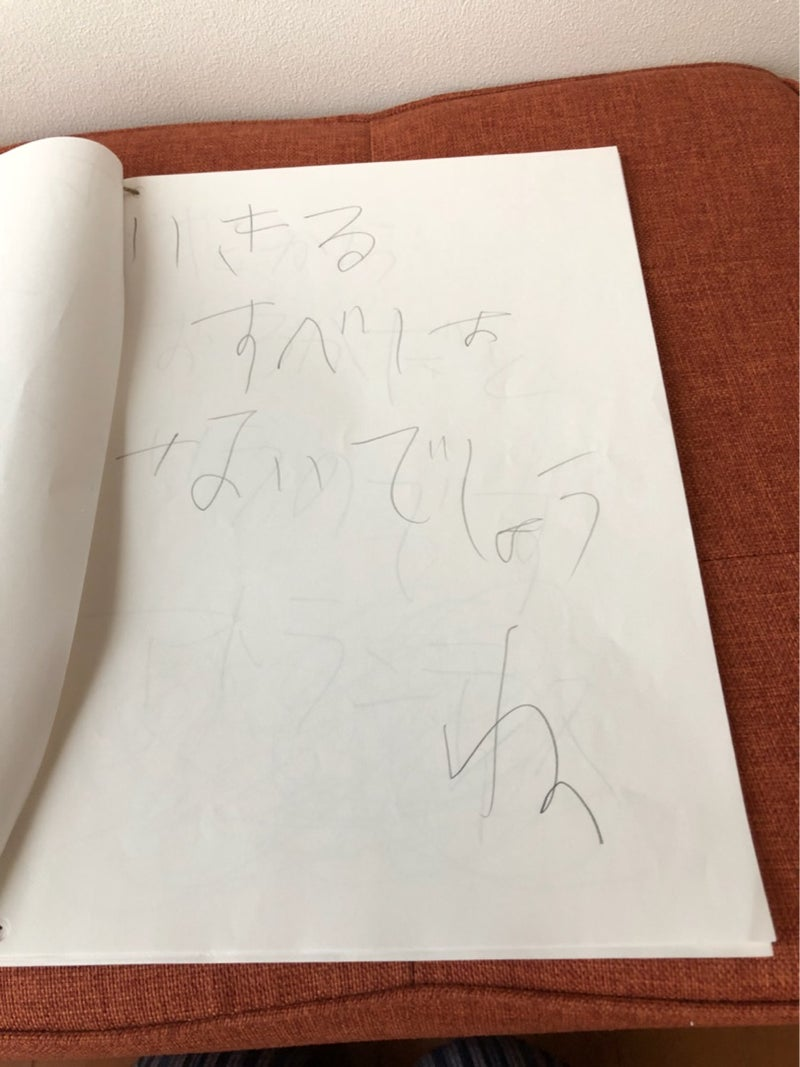 いきる
すべしょ
ないでしょう
ね